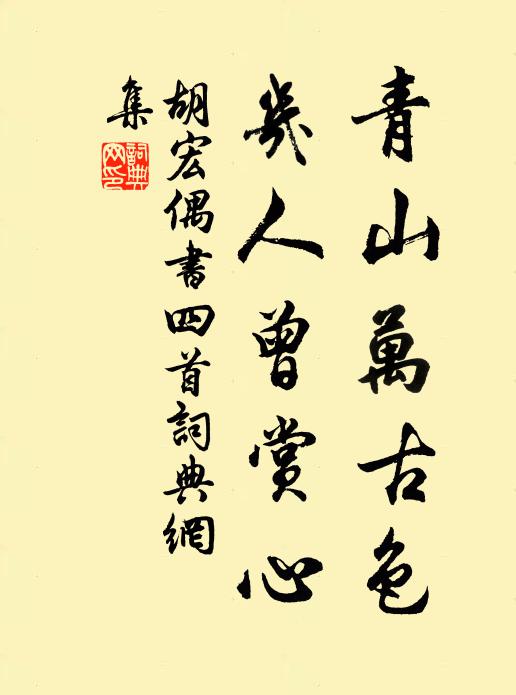 青山萬古色
幾人曾賞心
胡宏偶書四首詞典網
集
詞典
網印